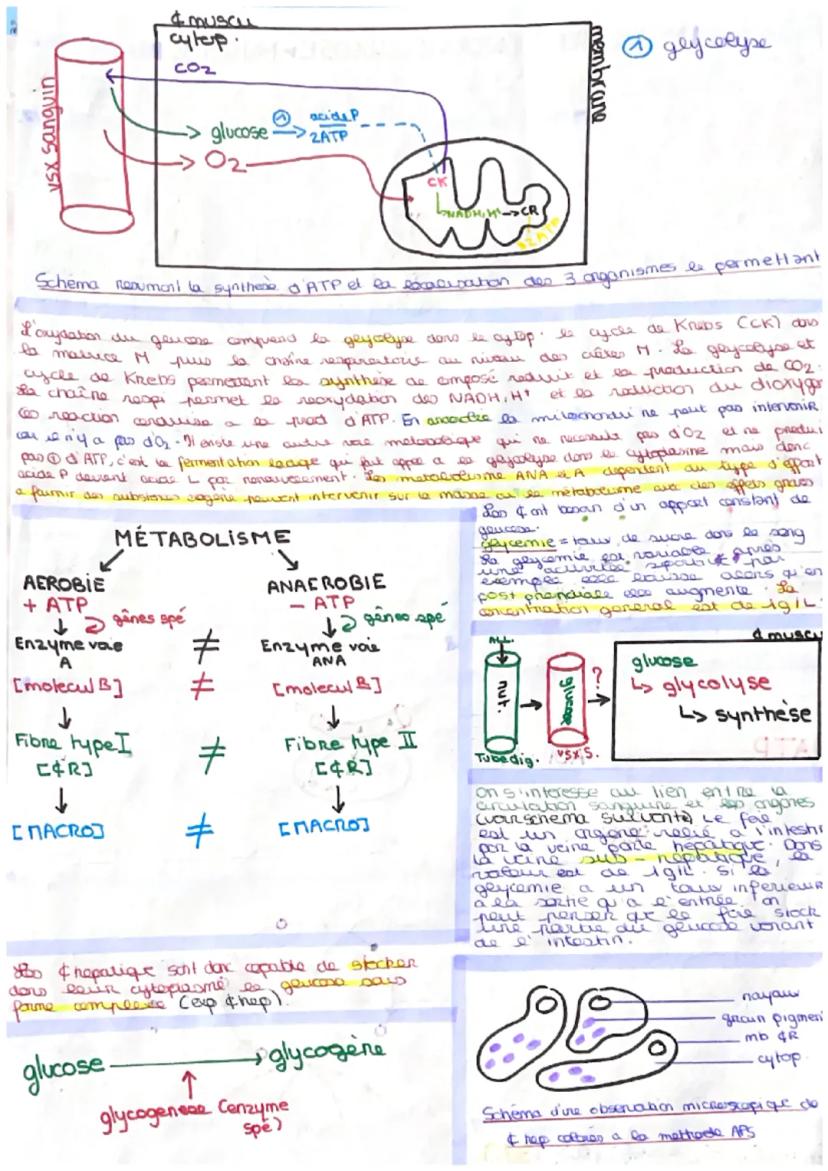 ¢ muscu
cytop.
membrane
① glycolyse
CO2
vsx sanguin
glucose ① acide P
2ATP
O2
CK
NADH,H+ → CR
32 ATP
Schéma resumant la synthèse d'ATP et la localisation des 3 organismes le permettant
L'oxydation du glucose comprend la glycolyse dans le cytop. le cycle de Krebs (CK) dans
la matrice M puis la chaîne respiratoire au niveau des crêtes M. La glycolyse et
cycle de Krebs permettent la synthèse de composé reduit et la production de CO2.
La chaîne respi permet la reoxydation des NADH,H+ et la reduction du dioxyg
ces reaction conduise a la prod d'ATP. En la mitochondri ne peut pas intervenir
car il n'y a pas d'O2. Il existe une autre voie metabolique qui ne necessite pas d'O2 et ne produi
pas ① d'ATP, c'est la fermentation lactique qui fait appel a la glycolyse dans le cytoplasme mais donc
acide P devient acide L par . Les metabolisme ANA et A dependent du type d'effort
a fournir des substances exogène peuvent intervenir sur la masse ou le métabolisme avec des effets graves
Les ¢ ont besoin d'un apport constant de
glucose.
glycemie = taux de sucre dans le sang
la glycemie est variable, après
une activité sportive par
exemple elle baisse alors qu'en
post prandiale elle augmente. La
concentration general est de 1g/L.
MÉTABOLISME
AEROBIE ANAEROBIE
+ ATP - ATP
gènes spé gènes spé
Enzyme voie ≠ Enzyme voie
A ANA
[molecul B] ≠ [molecul B]
Fibre type I ≠ Fibre type II
[¢R] [¢R]
[MACRO] ≠ [MACRO]
ALL.
nut.
Tube dig.
glucose
vsx S.
?
¢ muscu
glucose
↳ glycolyse
↳ synthèse
ATP
On s'interesse au lien entre la
circulation sanguine et les organes
(voir schema suivant) Le foie
est un organe relié a l'intesti
par la veine porte hepatique. Dans
la veine sub-hepatique, la
valeur est de 1g/L. Si la
glycemie a un taux inferieur
a la sortie qu'a l'entrée. On
peut penser que le foie stock
une partie du glucose venant
de l'intestin.
Les ¢ hepatique sont donc capable de stocker
dans leur cytoplasme le glucose sous
forme complexe (exp ¢hep).
glucose → glycogène
glycogenese (enzyme
spé)
noyaux
grain pigmen
mb ¢R
cytop.
Schéma d'une observation microscopique de
¢ hep colorées a la methode APS